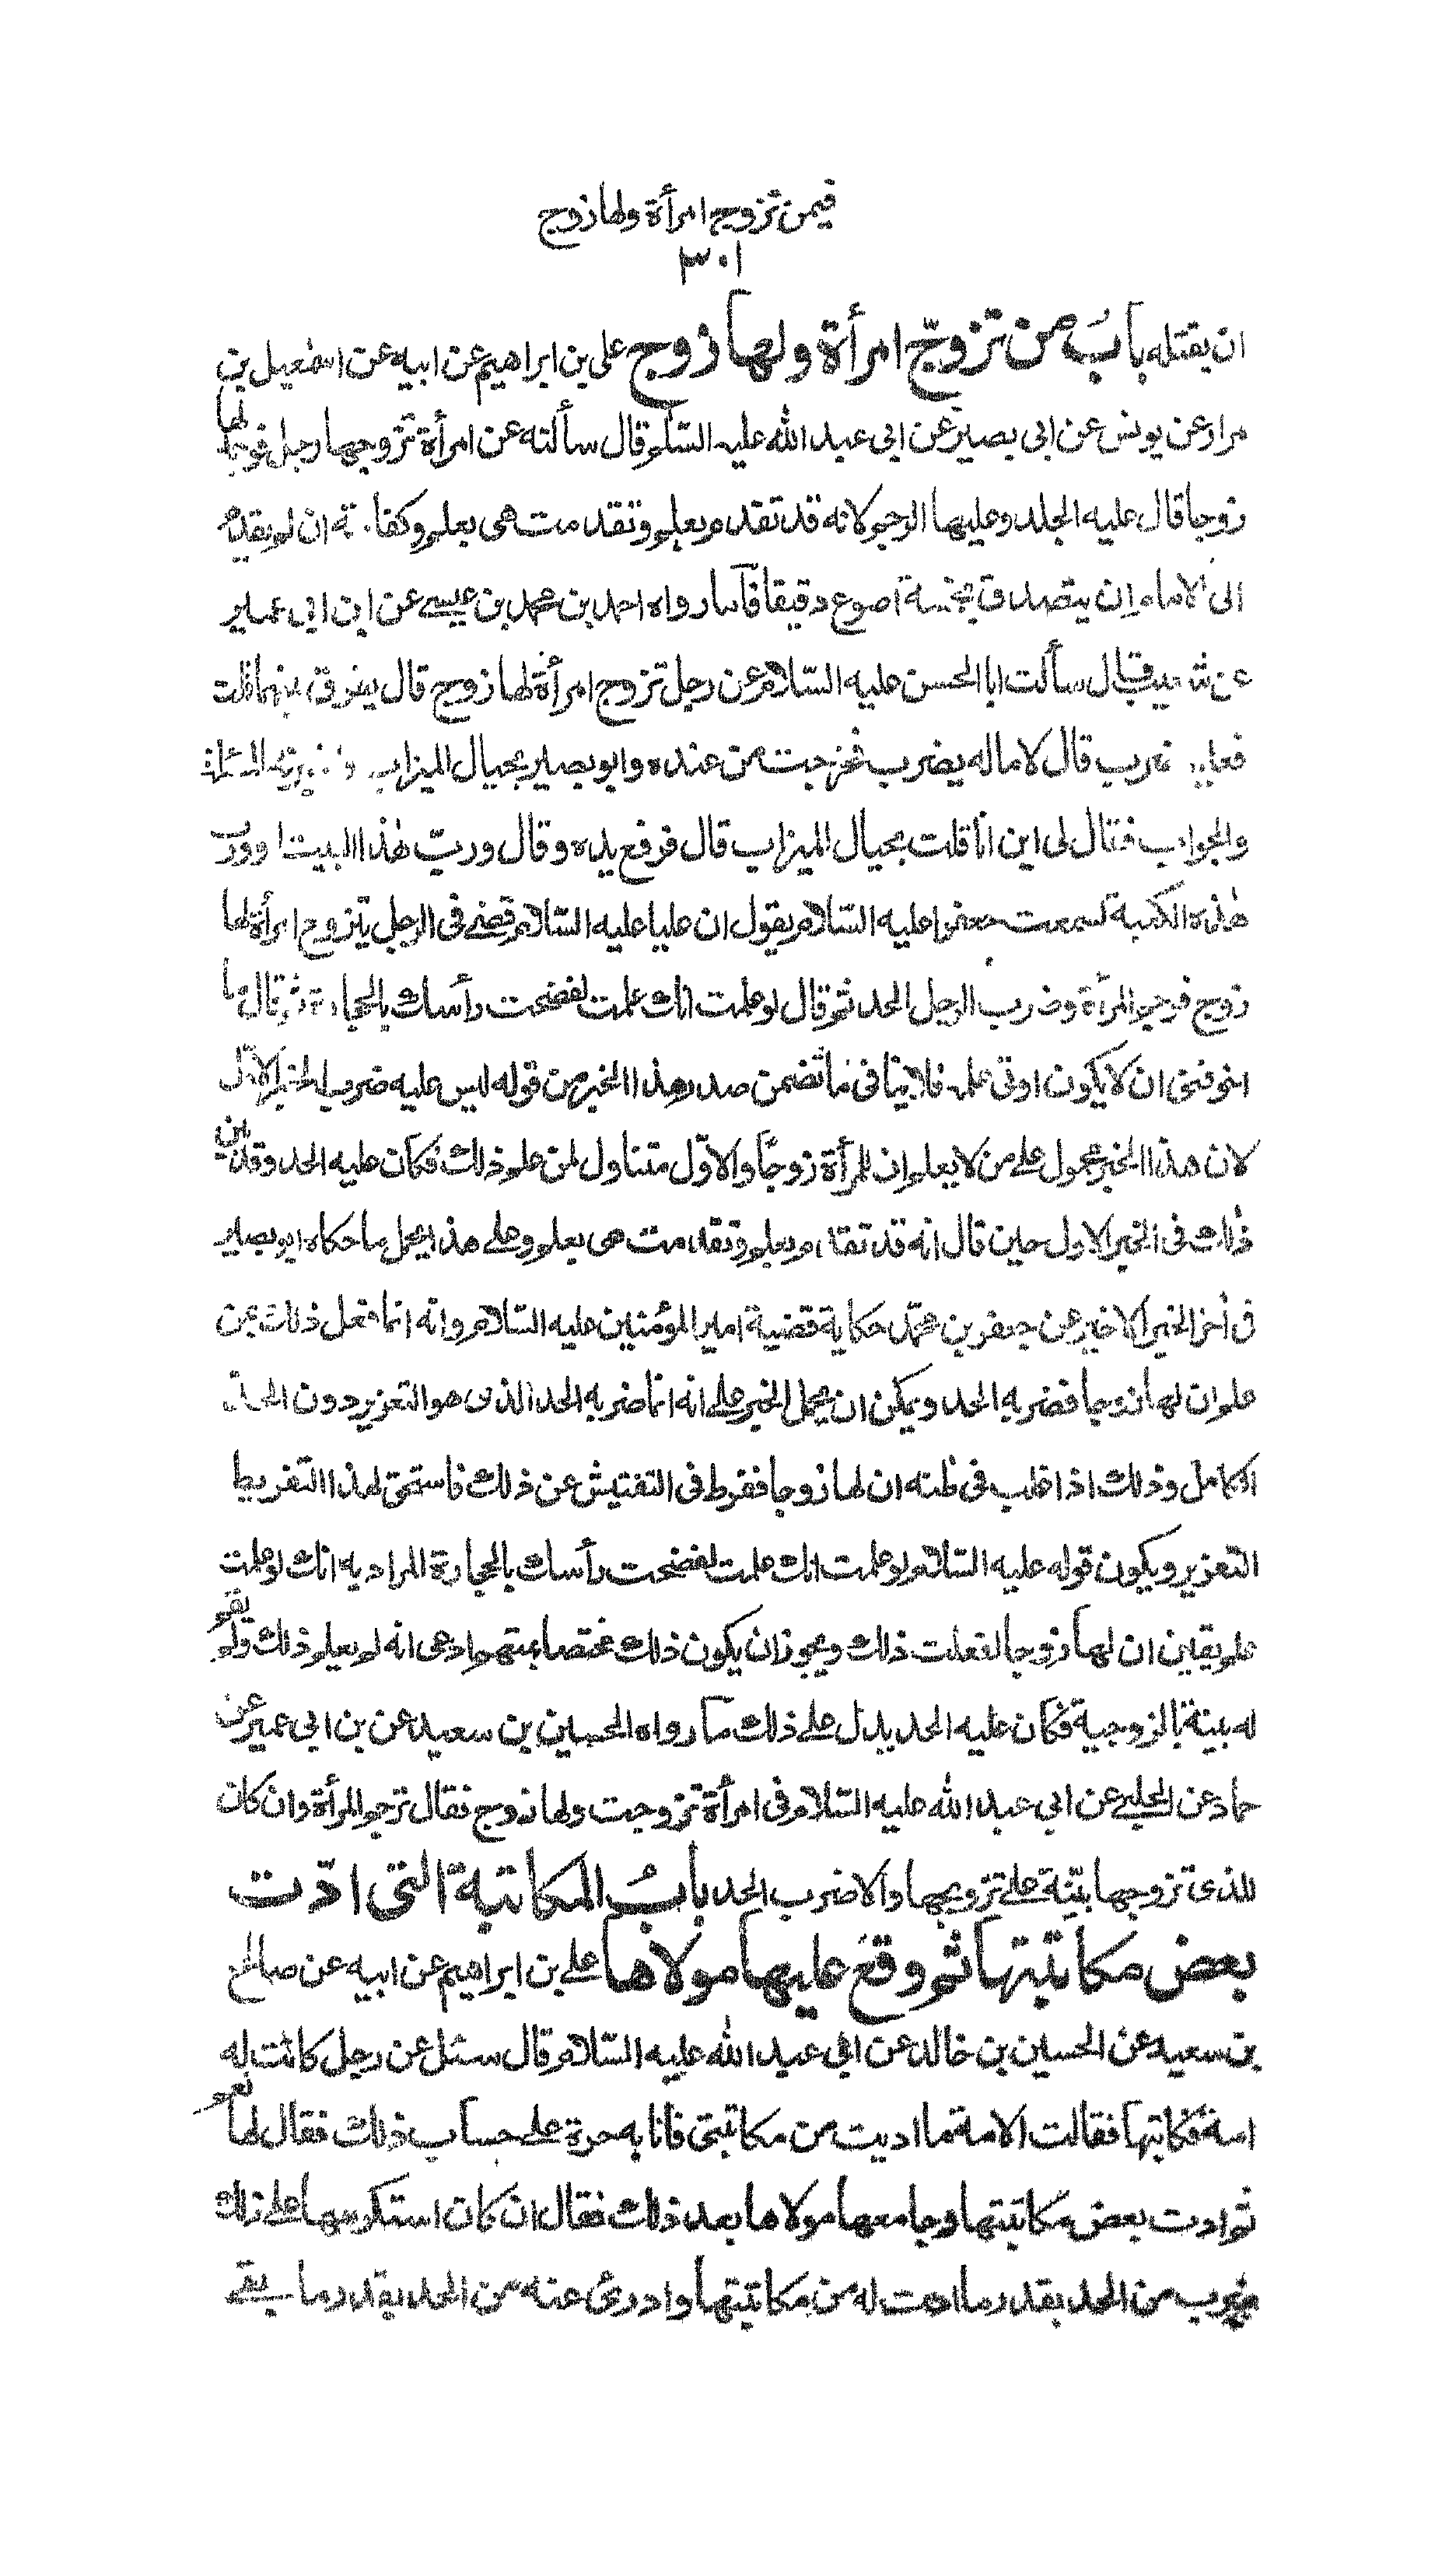 فيمن تزوج امرأة ولها زوج
٣٠١
ان يقتله باب من تزوّج امرأة ولها زوج على بن ابراهيم عن ابيه عن اسمٰعيل بن
مرار عن يونس عن ابى بصير عن ابى عبد الله عليه السّلم قال سألته عن امرأة تزوجها رجل فوجد لها
زوجا قال عليه الجلد وعليها الرجم لانه قد تقدم بعلم وتقدمت هى بعلم وكفارته ان لم يقدم
الى الامام ان يتصدق بخمسة اصوع دقيقا فأما ما رواه احمد بن محمد بن عيسى عن ابن ابى عمير
عن شعيب قال سألت ابا الحسن عليه السّلام عن رجل تزوج امرأة لها زوج قال يفرق بينهما قلت
فعليه ضرب قال لا ماله يضرب فخرجت من عنده وابو بصير بحيال الميزاب فاخبرته المسئلة
والجواب فقال لى اين انا قلت بحيال الميزاب قال فرفع يده وقال وربّ هٰذا البيت او ورب
هٰذه الكعبة لسمعت جعفرا عليه السّلام يقول ان عليا عليه السّلام قضى فى الرجل يتزوج امرأة لها
زوج فرجم المرأة وضرب الرجل الحد ثم قال لو علمت انك علمت لفضخت رأسك بالحجارة ثم قال ما
اخوفنى ان لا يكون اوتى علمه فلا ينافى ما تضمن صدر هذا الخبر من قوله ليس عليه ضرب الخبر الاول
لان هذا الخبر محمول على من لا يعلم ان للمرأة زوجًا والاوّل متناول لمن علم ذلك فكان عليه الحد وقد بين
ذٰلك فى الخبر الاول حين قال انه قد تقدم بعلم وتقدمت هى بعلم وعلى هذا يحمل ما حكاه ابو بصير
فى أخر الخبر الاخير عن جعفر بن محمّد حكاية قضية امير المؤمنين عليه السّلام وانه انما فعل ذلك بمن
علم ان لها زوجا فضربه الحد ويمكن ان يحمل الخبر على انه انما ضربه الحد الذى هو التعزير دون الحد
الكامل وذلك اذا غلب فى ظنه ان لها زوجا ففرط فى التفتيش عن ذلك فاستحق لهذا التفريط
التعزير ويكون قوله عليه السّلام لو علمت انك علمت لفضخت رأسك بالحجارة المراد به انك لو علمت
علم يقين ان لها زوجا لفعلت ذلك ويجوز ان يكون ذلك مختصا بمتهم ادعى انه لم يعلم ذلك ولم يقم
له بينة بالزوجية فكان عليه الحد يدل على ذلك ما رواه الحسين بن سعيد عن بن ابى عمير عن
حماد عن الحلبى عن ابى عبد الله عليه السّلام فى امرأة تزوجت ولها زوج فقال ترجم المرأة وان كان
للذى تزوجها بيّنة على تزويجها والا ضرب الحد باب المكاتبة التى ادّت
بعض مكاتبتها ثم وقع عليها مولاها على بن ابراهيم عن ابيه عن صالح
بن سعيد عن الحسين بن خالد عن ابى عبد الله عليه السّلام قال سئل عن رجل كانت له
امة فكاتبها فقالت الامة ما اديت من مكاتبتى فانا به حرة على حساب ذلك فقال لها نعم
ثم ادت بعض مكاتبتها وجامعها مولاها بعد ذلك فقال ان كان استكرهها على ذلك
ضرب من الحد بقدر ما ادت له من مكاتبتها وادرئ عنه من الحد بقدر ما بقى